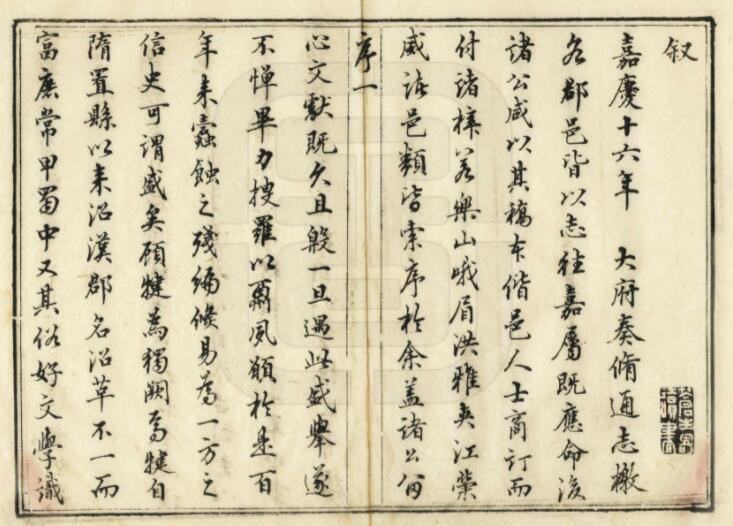 叙
嘉慶十六年　大府奏脩通志檄
各郡邑皆以志徃嘉屬既應命後
諸公咸以其稿本偕邑人士商訂而
付諸梓若樂山峨眉洪雅夾江榮
威諸邑類皆索序於余盖諸公留
序一
心文獻既久且殷一旦遇此盛舉遂
不憚畢力搜羅以肅夙願於是百
年来蠹蝕之殘編倐易為一方之
信史可謂盛矣顧犍為獨闕焉犍自
隋置縣以来沿漢郡名沿革不一而
富庶常甲蜀中又其俗好文學識